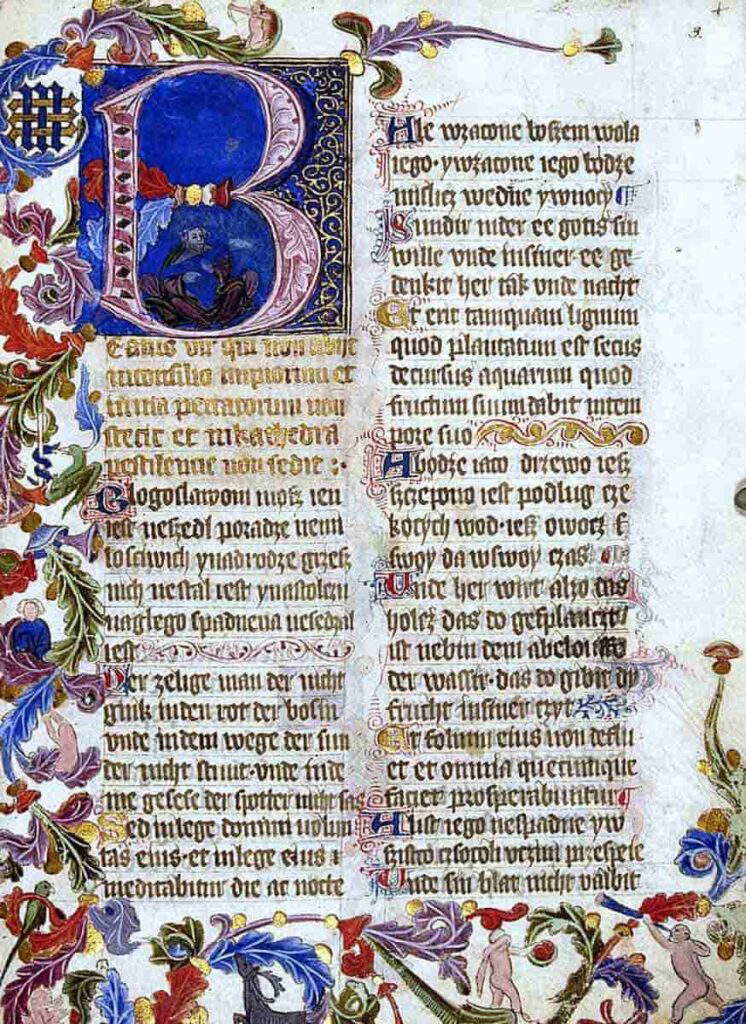 B
eatus vir qui non abiit
in consilio impiorum et
in via peccatorum non
stetit et in kathedra
pestilencie non sedit :
Blogoslawoni mosz ien
iest neszedl po radze nemi
losciwich y na drodze grzesz
nich ne stal iest y na stolczu
naglego spadnena ne sedzal
iest
Der zelige man der nicht
gink in den rot der bosin
unde in dem wege der sun
der nicht stunt · unde in de
me gesese der spotter nicht sas
Sed in lege domini volun
tas eius · et in lege eius
meditabitur die ac nocte
Ale w zacone boszem wola
iego · y w zacone iego bodze
mislicz we dne y w nocy
Sundir in der ee gotis sin
wille unde in siner ee ge
denkit her tak unde nacht
Et erit tamquam lignum
quod plantatum est secus
decursus aquarum quod
fructum suum dabit in tem
pore suo
A bodze iaco drzewo iesz
szczepono iest podlug cze
kocych wod · iesz owocz
swoy da w swoy czas
Unde her wirt alzo das
holcz das do gesplanczt
ist nebin dem abeloufe
der wassir · das do gibit dy
frucht in siner czyt
Et folium eius non deflu
et et omnia quecumque
faciet prosperabuntur
A list iego ne spadne y w
szistco czsocoli uczini przespeie
Unde sin blat nicht valbit